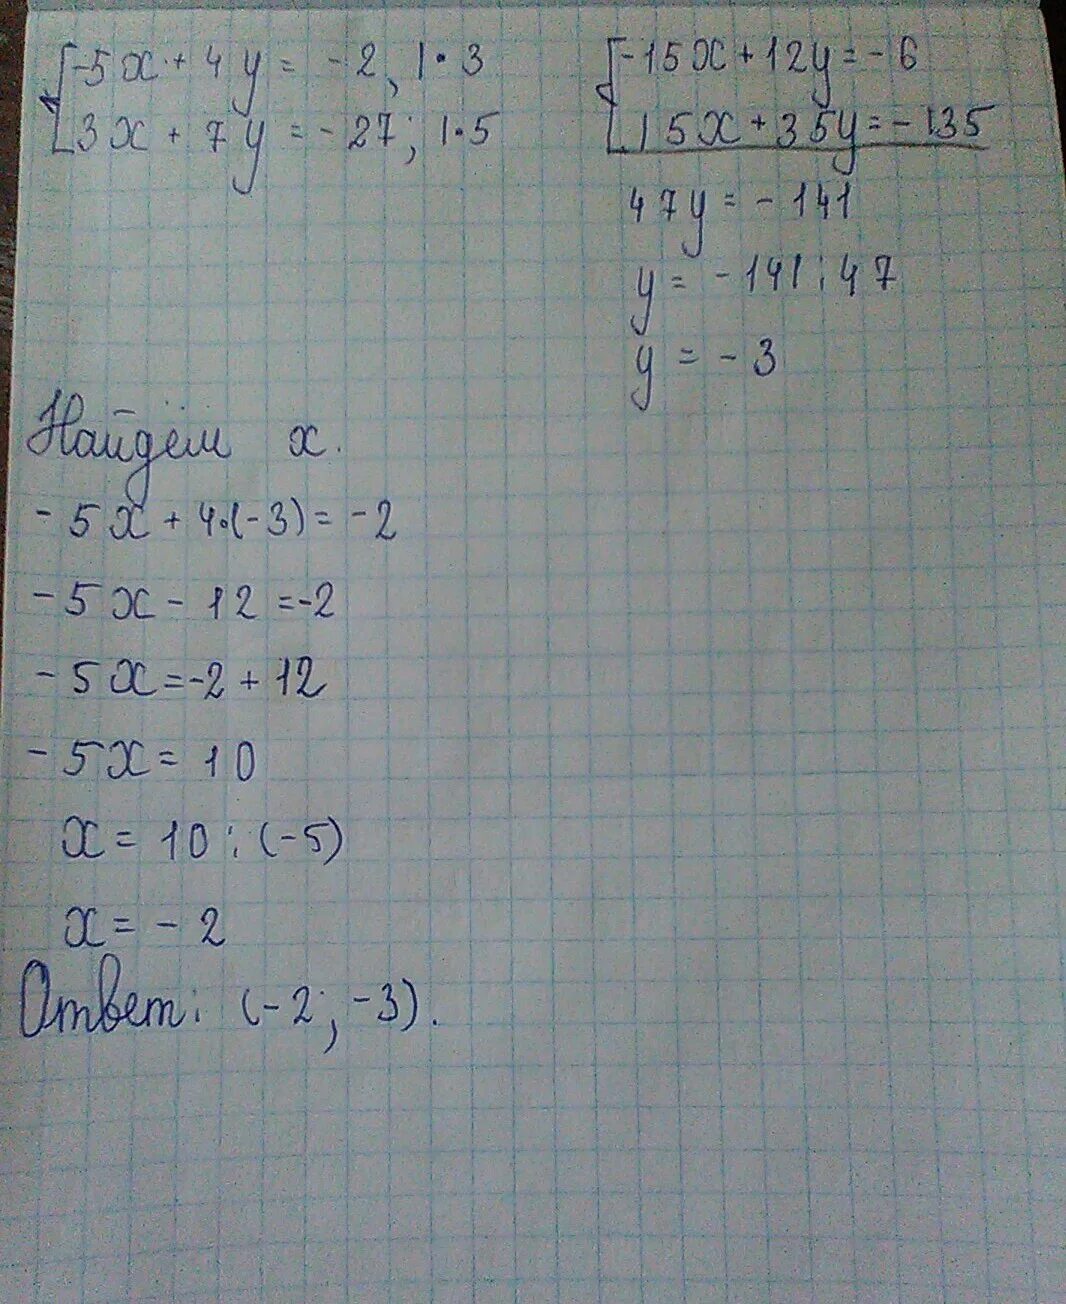 -5x + 4y = -2, | · 3
3x + 7y = -27; | · 5
-15x + 12y = -6
15x + 35y = -135
47y = -141
y = -141 : 47
y = -3
Найдём x.
-5x + 4·(-3) = -2
-5x - 12 = -2
-5x = -2 + 12
-5x = 10
x = 10 : (-5)
x = -2
Ответ: (-2; -3).